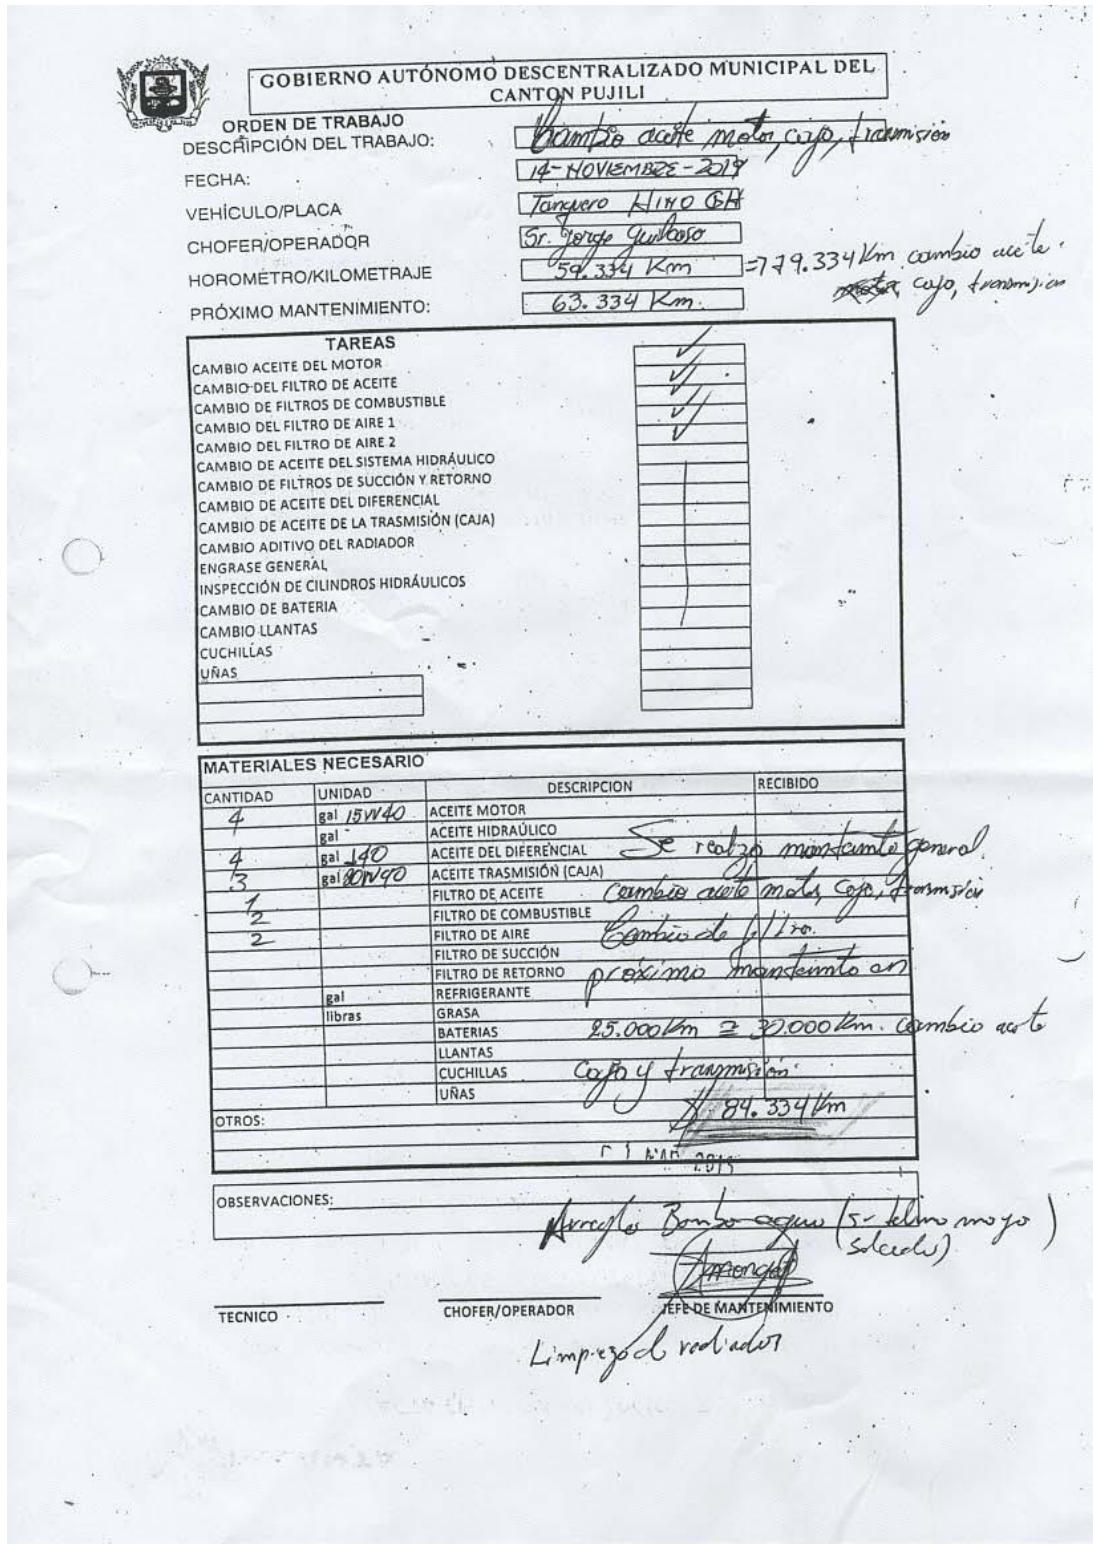 GOBIERNO AUTÓNOMO DESCENTRALIZADO MUNICIPAL DEL
CANTON PUJILI
ORDEN DE TRABAJO
DESCRIPCIÓN DEL TRABAJO: Cambio aceite motor, caja, transmisión
FECHA: 14-NOVIEMBRE-2019
VEHÍCULO/PLACA Tanquero HINO GH
CHOFER/OPERADOR Sr. Jorge
HOROMETRO/KILOMETRAJE 59.334 Km => 79.334 Km cambio aceite
caja, transmision
PRÓXIMO MANTENIMIENTO: 63.334 Km.
TAREAS
CAMBIO ACEITE DEL MOTOR ✓
CAMBIO DEL FILTRO DE ACEITE ✓
CAMBIO DE FILTROS DE COMBUSTIBLE ✓
CAMBIO DEL FILTRO DE AIRE 1 ✓
CAMBIO DEL FILTRO DE AIRE 2 ✓
CAMBIO DE ACEITE DEL SISTEMA HIDRÁULICO
CAMBIO DE FILTROS DE SUCCIÓN Y RETORNO
CAMBIO DE ACEITE DEL DIFERENCIAL
CAMBIO DE ACEITE DE LA TRASMISIÓN (CAJA)
CAMBIO ADITIVO DEL RADIADOR
ENGRASE GENERAL
INSPECCIÓN DE CILINDROS HIDRÁULICOS
CAMBIO DE BATERIA
CAMBIO LLANTAS
CUCHILLAS
UÑAS
MATERIALES NECESARIO
CANTIDAD UNIDAD DESCRIPCION RECIBIDO
4 gal 15W40 ACEITE MOTOR
gal ACEITE HIDRAÚLICO
4 gal 140 ACEITE DEL DIFERENCIAL Se realizo general.
3 gal 80W90 ACEITE TRASMISIÓN (CAJA)
1 FILTRO DE ACEITE cambio aceite motor, caja, transmisión
2 FILTRO DE COMBUSTIBLE
2 FILTRO DE AIRE Cambio de filtro.
FILTRO DE SUCCIÓN
FILTRO DE RETORNO próximo en
gal REFRIGERANTE
libras GRASA
BATERIAS 25.000 Km 30.000 Km. cambio aceite
LLANTAS
CUCHILLAS Caja y transmisión.
UÑAS
84.334 Km
OTROS:
2019
OBSERVACIONES:
Arreglo Bomba agua
TECNICO CHOFER/OPERADOR JEFE DE MANTENIMIENTO
Limpieza d radiador